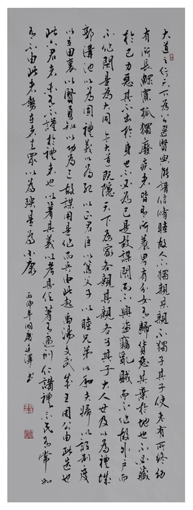 大道之行天下為公選賢與能講信修睦故人不獨親其親不獨子其子使老有所終幼
有所長鰥寡孤獨廢疾者皆有所養男有分女有歸貨惡其棄於地也不必藏
於己力惡其不出於身也不必為己是故謀閉而不興盜竊亂賊而不作故外戶而
不閉是為大同今大道既隱天下為家各親其親各子其子貨力為己大人世及以為禮城
郭溝池以為固禮義以為紀以正君臣以篤父子以睦兄弟以和夫婦以設制度
以立田里以賢勇知以功為己故謀用是作而兵由此起禹湯文武成王周公由此其選也
此六君子者未有不謹於禮者也以著其義以考其信著有過刑仁講讓示民有常如
有不由此者在執者去眾以為殃是為小康